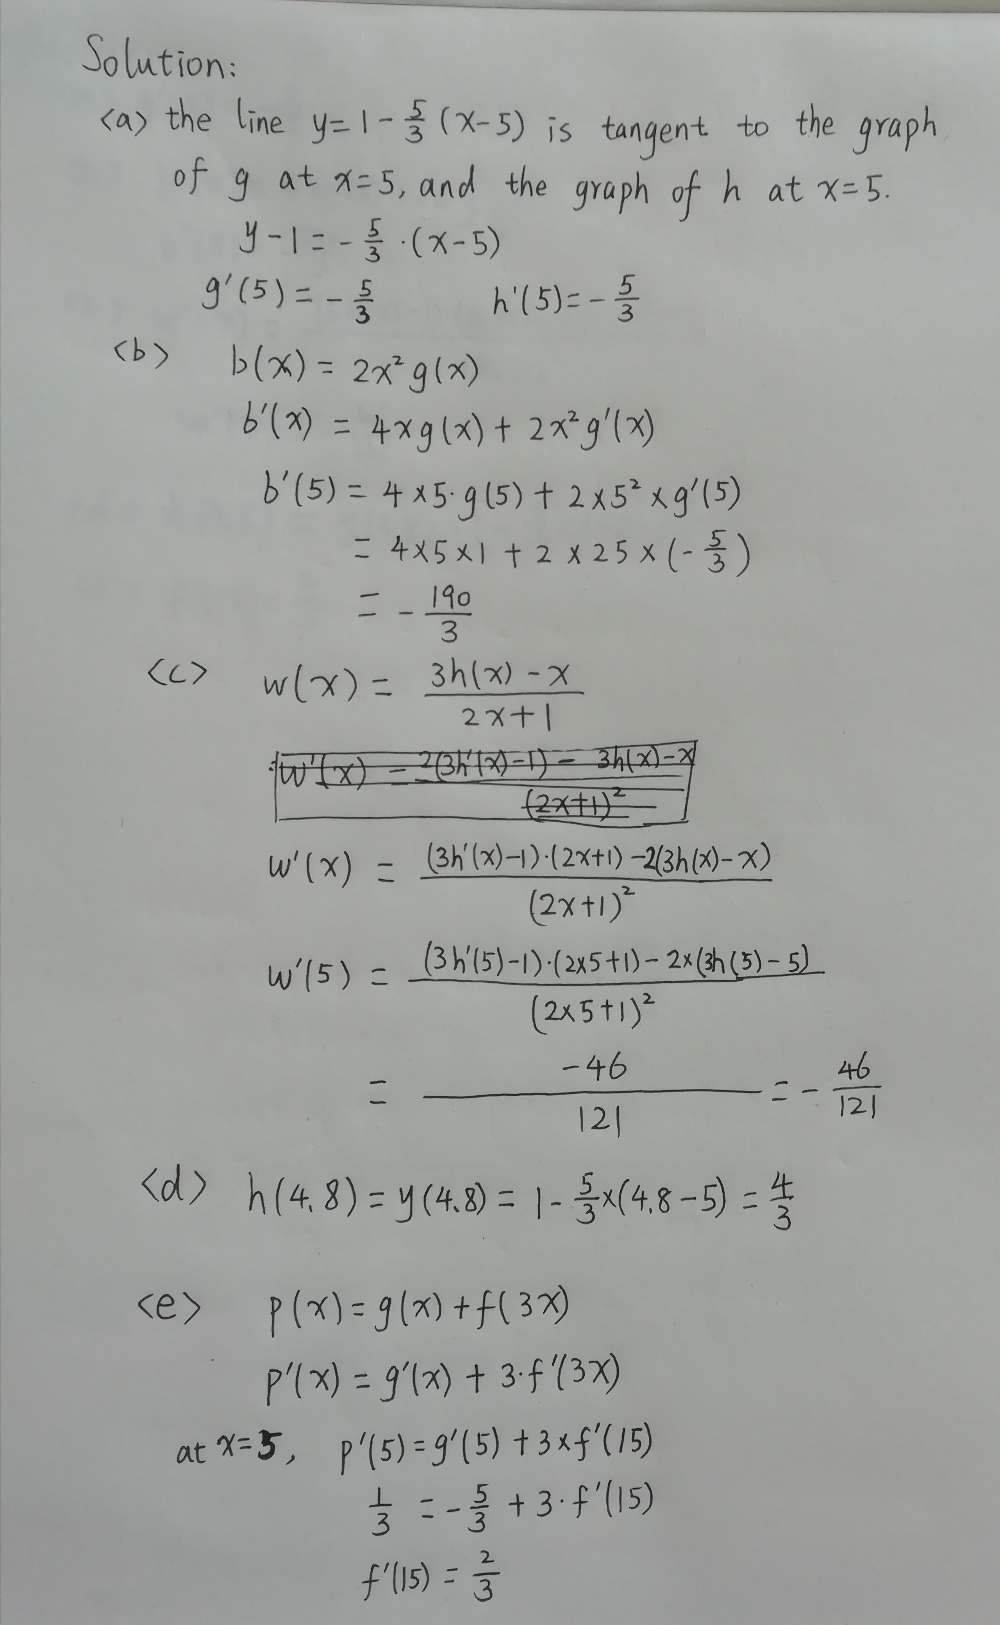 Solution:
<a> the line y=1-5/3(x-5) is tangent to the graph
of g at x=5, and the graph of h at x=5.
y-1=-5/3·(x-5)
g'(5)=-5/3 h'(5)=-5/3
<b> b(x)=2x²g(x)
b'(x)=4xg(x)+2x²g'(x)
b'(5)=4×5·g(5)+2×5²×g'(5)
=4×5×1+2×25×(-5/3)
=-190/3
<c> w(x)=(3h(x)-x)/(2x+1)
w'(x)=(2(3h'(x)-1)-3h(x)-x)/(2x+1)²
w'(x)=((3h'(x)-1)·(2x+1)-2(3h(x)-x))/(2x+1)²
w'(5)=((3h'(5)-1)·(2×5+1)-2×(3h(5)-5))/(2×5+1)²
=-46/121=-46/121
<d> h(4.8)=y(4.8)=1-5/3×(4.8-5)=4/3
<e> p(x)=g(x)+f(3x)
p'(x)=g'(x)+3·f'(3x)
at x=5, p'(5)=g'(5)+3×f'(15)
1/3=-5/3+3·f'(15)
f'(15)=2/3